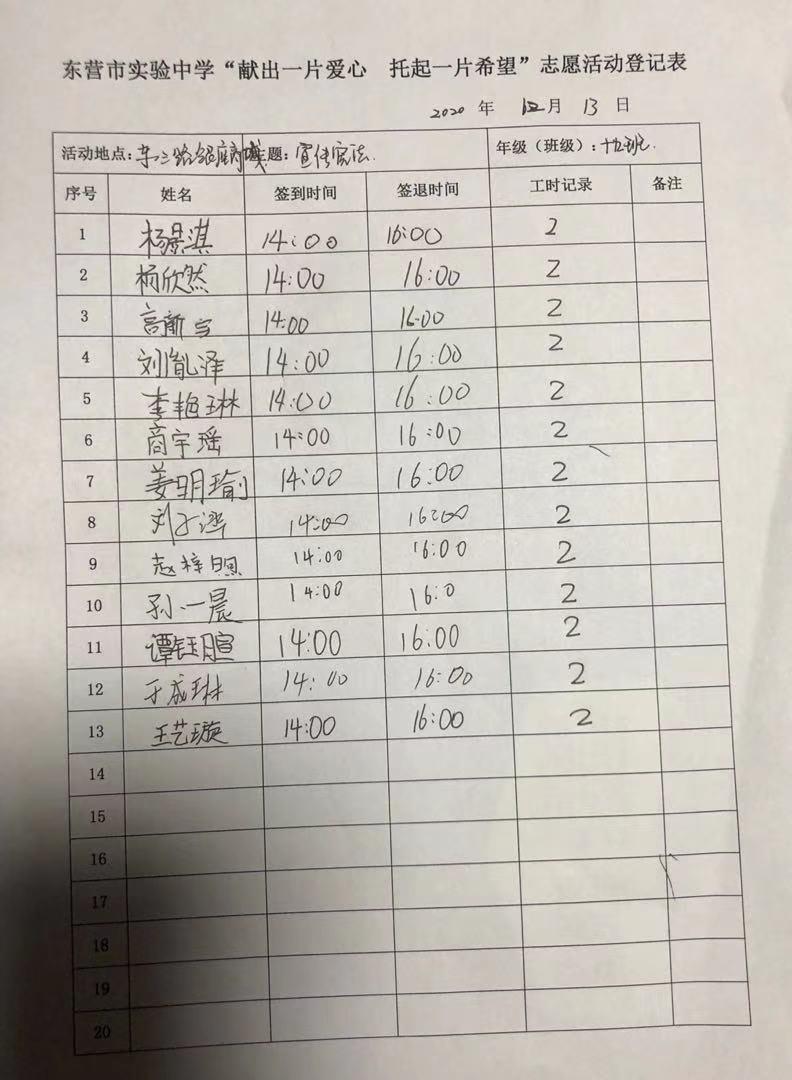 东营市实验中学“献出一片爱心 托起一片希望”志愿活动登记表
2020 年 12月 13 日
活动地点: 东三路银座商城 主题: 宣传宪法. 年级(班级): 十五班.
序号 姓名 签到时间 签退时间 工时记录 备注
1 杨景淇 14:00 16:00 2
2 杨欣然 14:00 16:00 2
3 14:00 16:00 2
4 刘胤泽 14:00 16:00 2
5 李艳琳 14:00 16:00 2
6 商宇瑶 14:00 16:00 2
7 姜明瑜 14:00 16:00 2
8 14:00 16:00 2
9 赵梓煦 14:00 16:00 2
10 孙一晨 14:00 16:0 2
11 谭钰暄 14:00 16:00 2
12 于成琳 14:00 16:00 2
13 王艺璇 14:00 16:00 2
14
15
16
17
18
19
20